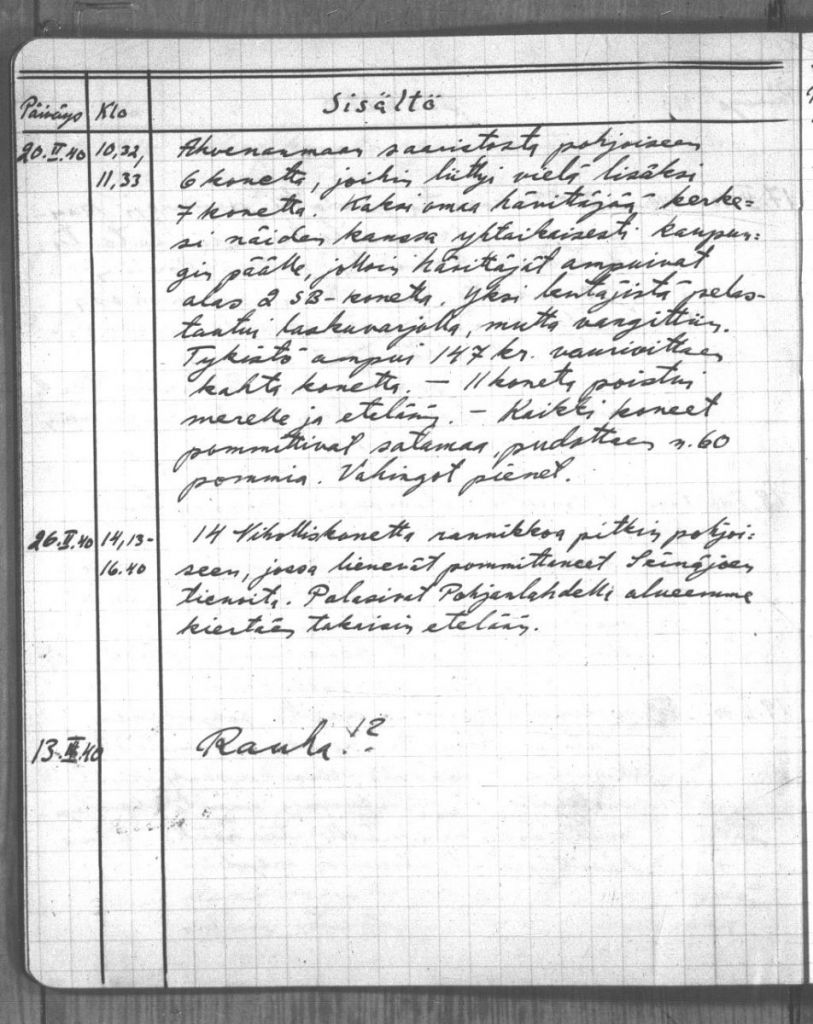 Päiväys Klo Sisältö
20.II.40 10,32, Ahvenanmaan saaristosta pohjoiseen
11,33 6 konetta, joihin liittyi vielä lisäksi
7 konetta. Kaksi omaa hävittäjää kerke=
si näiden kanssa yhtaikaisesti kaupun=
gin päälle, jolloin hävittäjät ampuivat
alas 2 SB-konetta. Yksi lentäjistä pelas-
tautui laskuvarjolla, mutta vangittiin.
Tykistö ampui 147 kr. vaurioittaen
kahta konetta. — 11 konetta poistui
merelle ja etelään. – Kaikki koneet
pommittivat satamaa pudottaen n. 60
pommia. Vahingot pienet.
26.II.40 14,13- 14 Viholliskonetta rannikkoa pitkin pohjoi=
16.40 seen, jossa lienevät pommittaneet Seinäjoen
tienoita. Palasivat Pohjanlahdella alueemme
kiertäen takaisin etelään.
13.III.40 Rauha!?